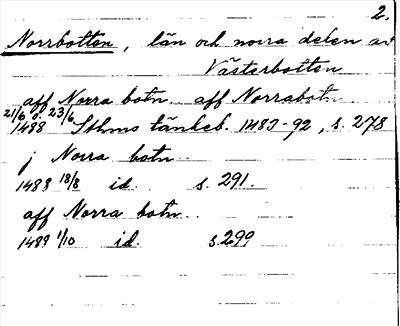 2.
Norrbotten, län och norra delen av
Västerbotten
aff Norra botn. aff Norrabotn
21/6 o. 23/6
1488 Sthms tänkeb. 1483-92, s. 278
j Norra botn
1488 18/8 id. s. 291.
aff Norra botn
1489 1/10 id. s. 299